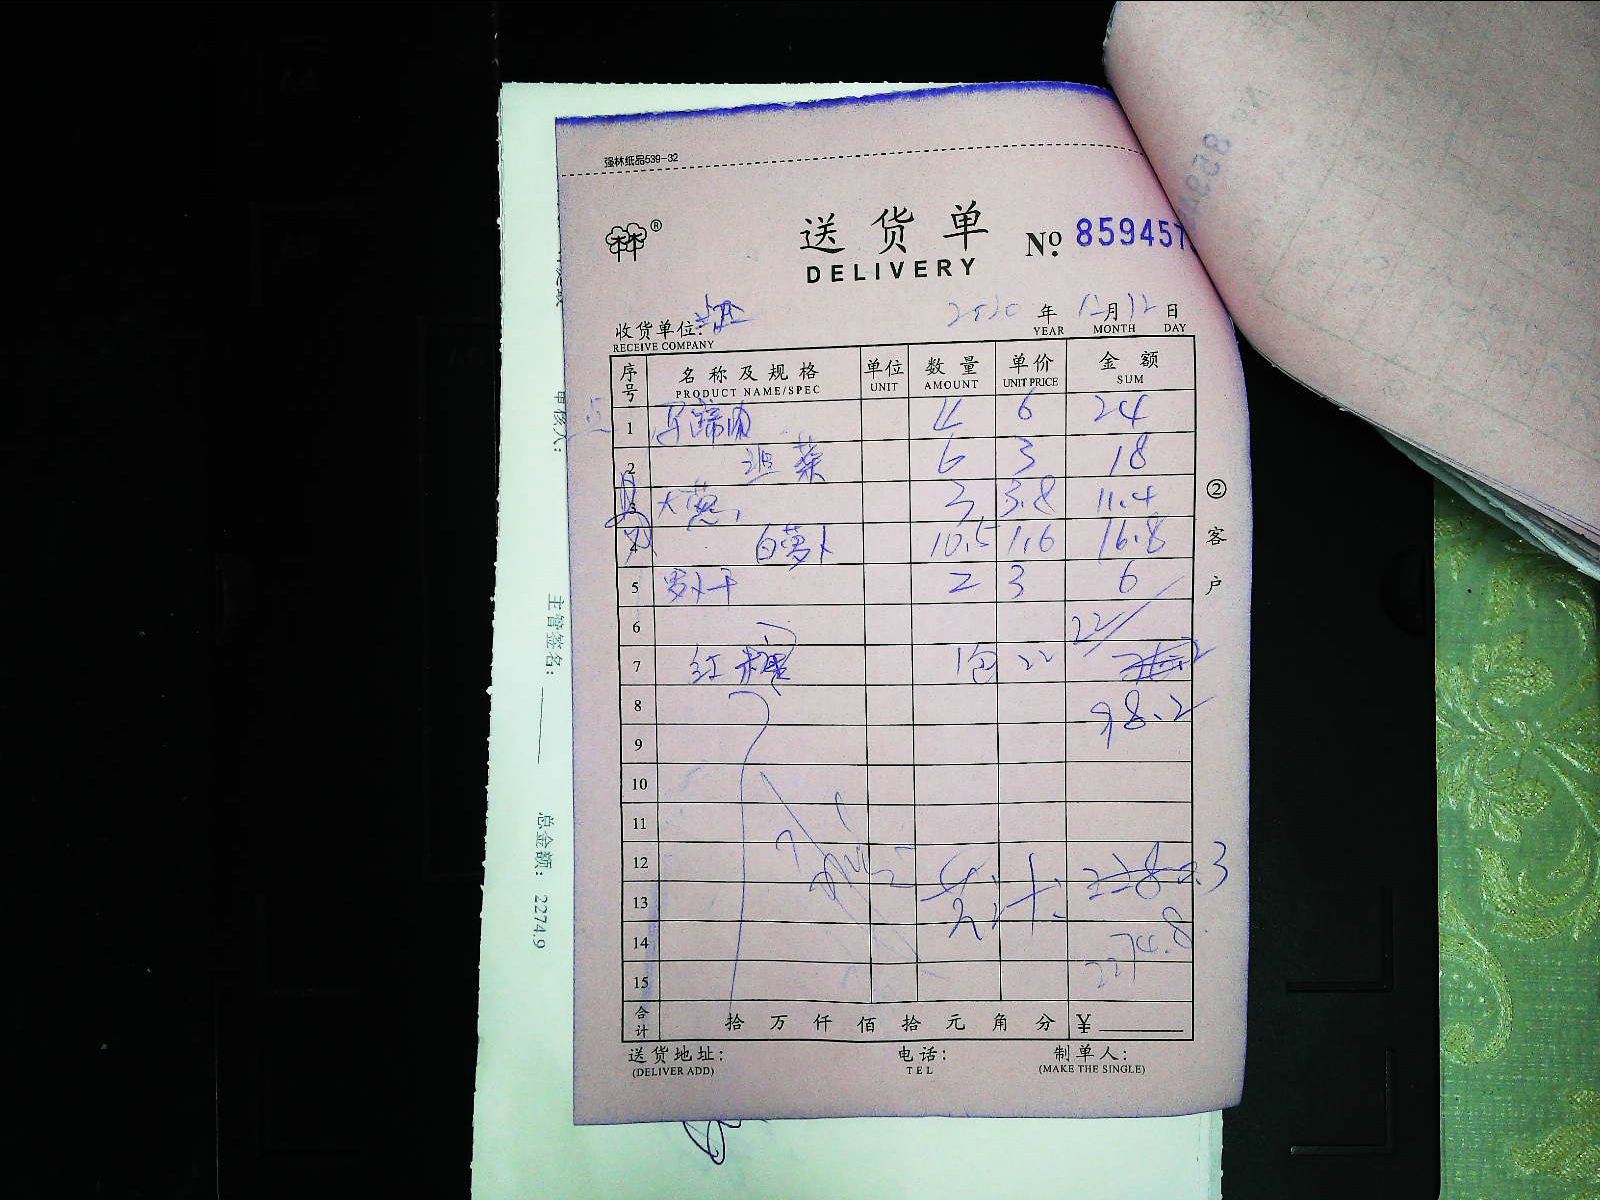 强林纸品539-32
林®
送货单
DELIVERY
No. 859457
收货单位:
RECEIVE COMPANY
2020 年 12 月 12 日
YEAR MONTH DAY
序号 名称及规格 单位 数量 单价 金额
PRODUCT NAME/SPEC UNIT AMOUNT UNIT PRICE SUM
1 马蹄肉 4 6 24
2 韭菜 6 3 18
3 大葱 3 3.8 11.4
4 白萝卜 10.5 1.6 16.8
5 罗卜干 2 3 6
6 22
7 红糖 1包 22
8 98.2
9
10
11
12
13 共计
14 2274.8
15
合计 拾 万 仟 佰 拾 元 角 分 ¥
送货地址: 电话: 制单人:
(DELIVER ADD) TEL (MAKE THE SINGLE)
②客户
审核人:
主管签名:
总金额: 2274.9